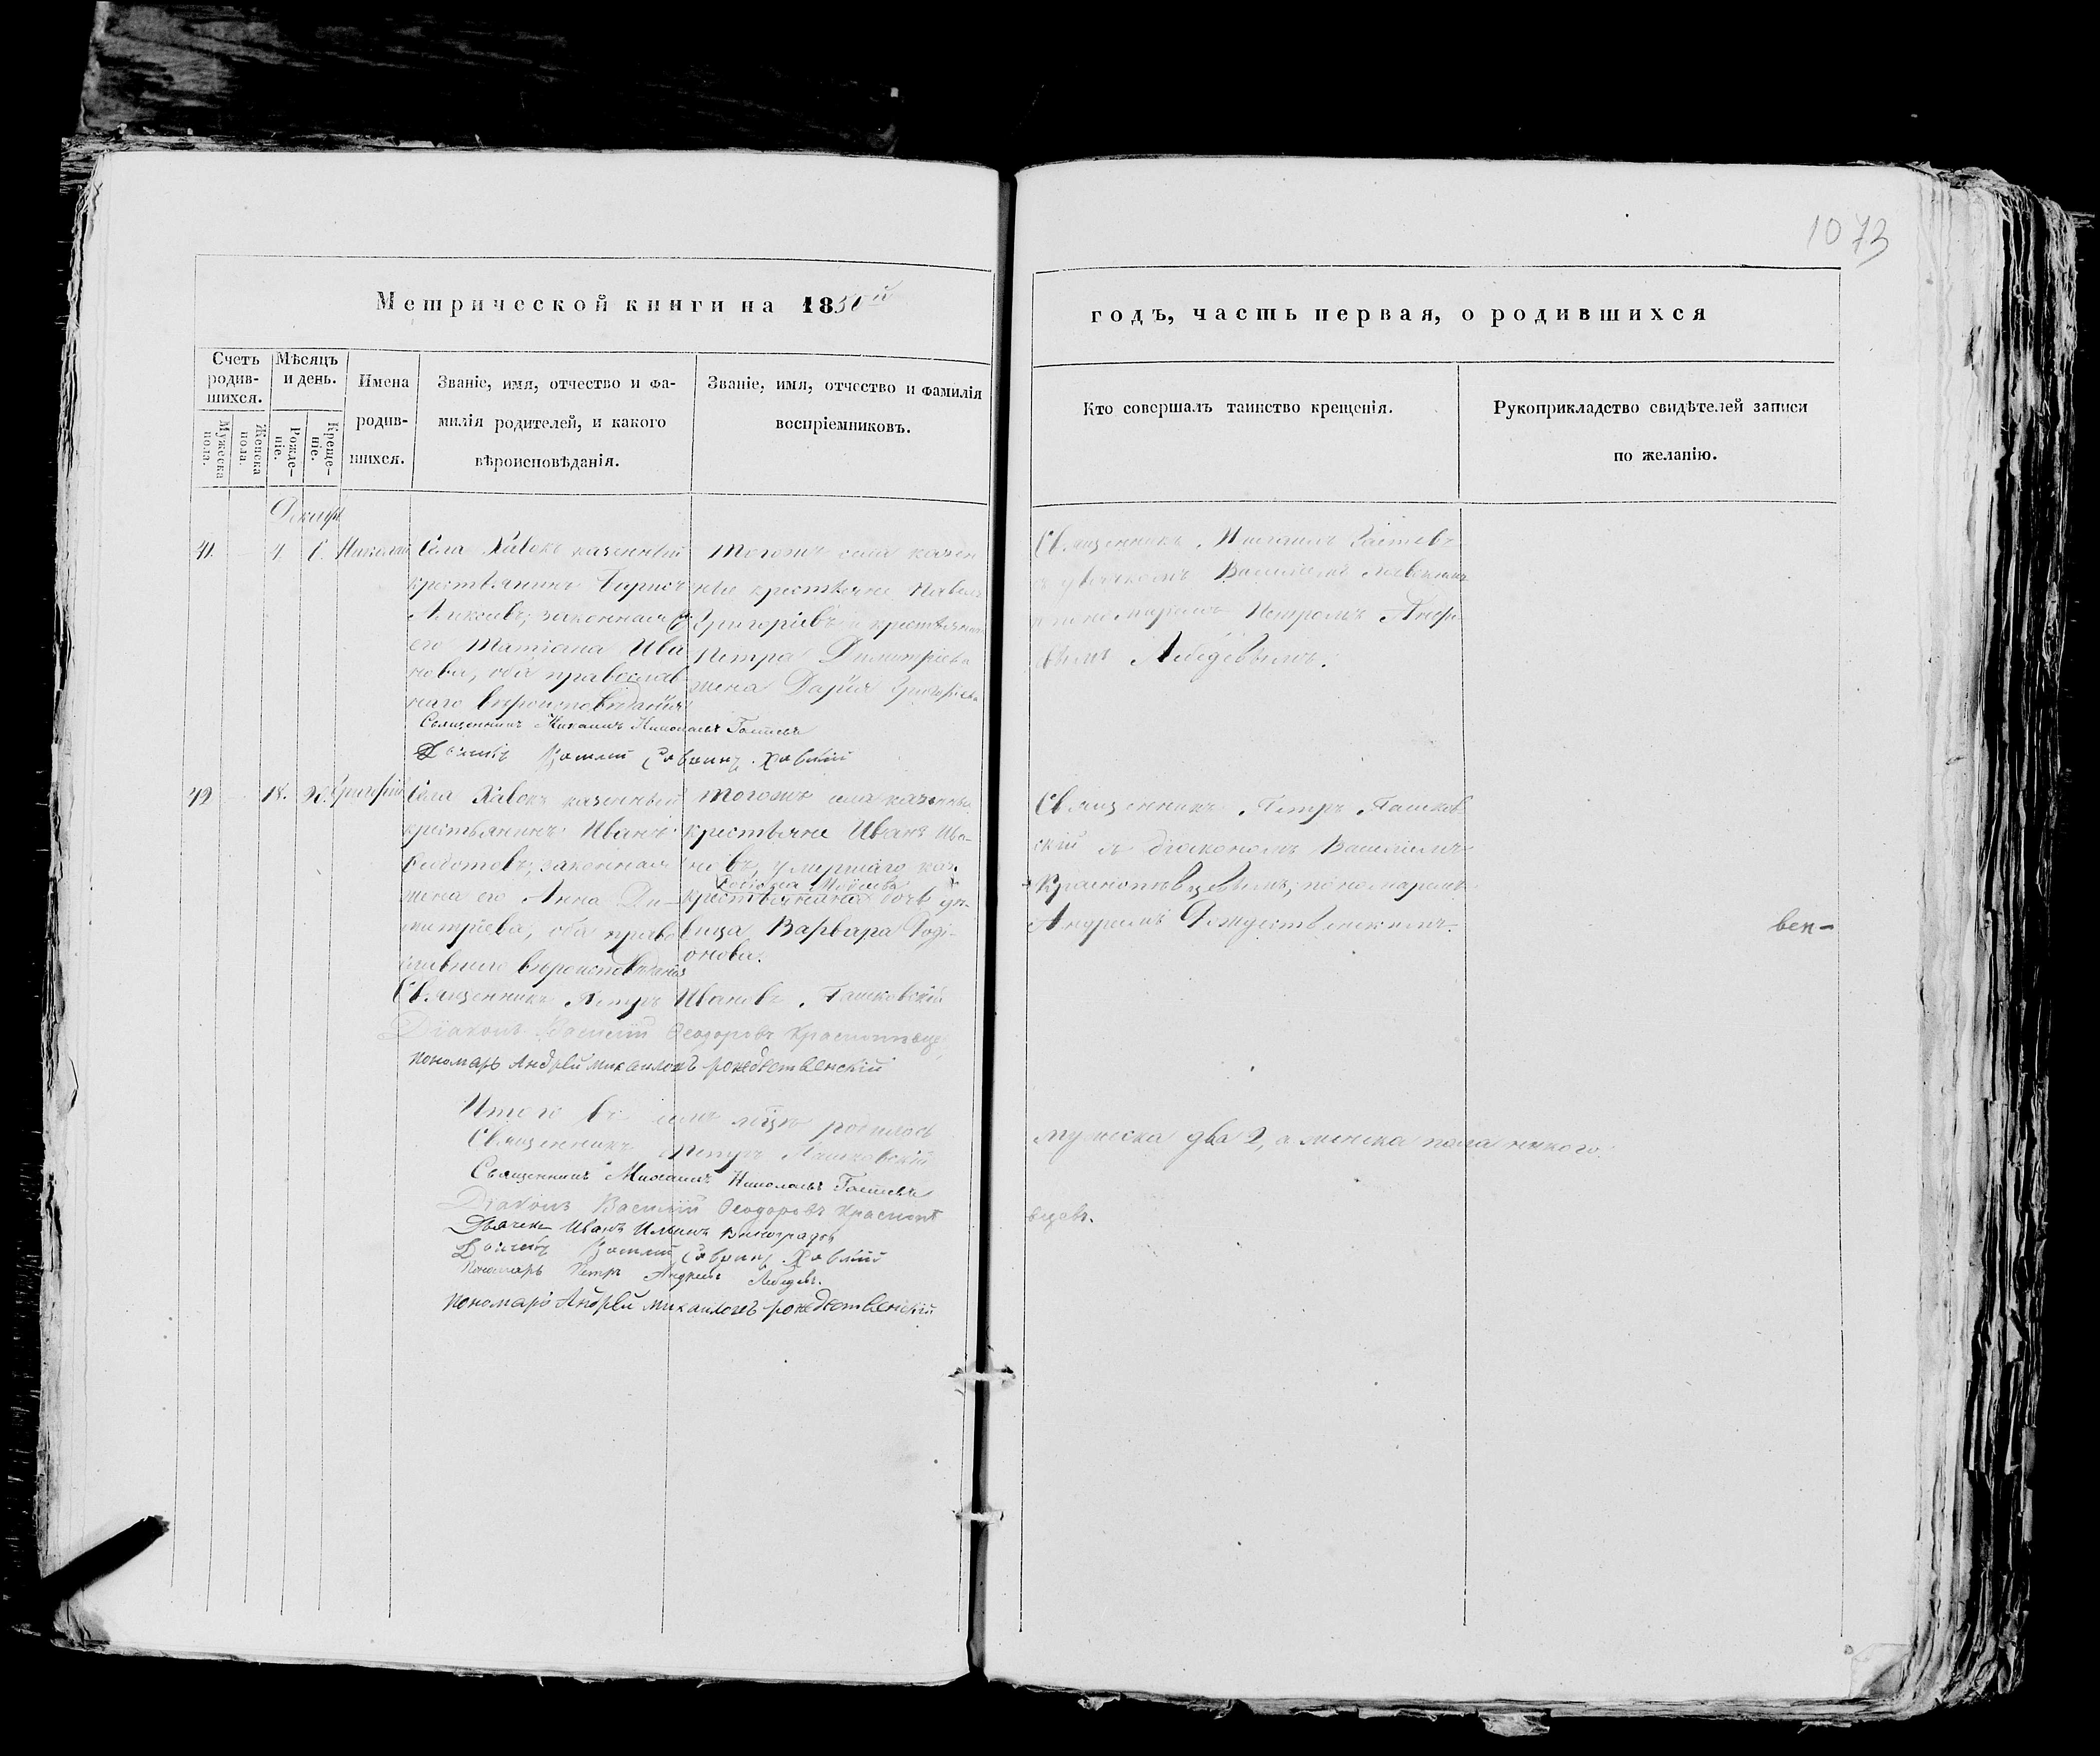 1073
Метрической книги на 1850й
годъ, часть первая, о родившихся
Счетъ родив-шихся.
Мужеска пола.
Женска пола.
Мѣсяцъ и день.
Рожде-ніе.
Креще-ніе.
Имена
родив-
шихся.
Званіе, имя, отчество и фа-
милія родителей, и какого
вѣроисповѣданія.
Званіе, имя, отчество и фамилія
воспріемниковъ.
Кто совершалъ таинство крещенія.
Рукоприкладство свидѣтелей записи
по желанію.
41. 4. 6. Николай
Села Хавокъ казенный
крестьянинъ Борисъ
Алексѣевъ; законная
его Татіана Ива
нова, оба православ
наго вѣроисповѣданія
тогожъ села казен
ные крестьяне Павелъ
Григорьевъ и крестьянина
Петра Димитріева
жена Дарья Григорьева
Священникъ Михаилъ
съ дьячкомъ Василіемъ Хавскимъ
и пономаремъ Петромъ Андре
евымъ Лебедевымъ.
Священникъ Михаилъ Николаевъ
Дьячекъ Василій Саввинъ Хавскій
42 18. 20. Григорій
Села Хавокъ казенный
крестьянинъ Иванъ
Ѳедотовъ; законная
жена его Анна Ди-
митріева, оба право
славнаго вѣроисповѣданія
тогожъ села казенные
крестьяне Иванъ Ива-
новъ, умершаго каз.
крестьянина дочь дѣ-
вица Варвара Роді-
онова.
Священникъ Петръ Пашков
скій съ діакономъ Василіемъ
Краснопѣвцевымъ; пономаремъ
Андреемъ Рождественскимъ.
вен-
Священникъ Петръ Ивановъ Пашковскій
Діаконъ Василій Ѳеодоровъ Краснопѣвцев
пономарь Андрей михаиловъ рождественскій
Итого въ семъ мѣсяцѣ родилось
мужеска два 2, а женска пола никого.
Священникъ Петръ Пашковскій
Священникъ Михаилъ Николаевъ
Діаконъ Василій Ѳеодоровъ Краснопѣ
вцевъ.
Дьячекъ Иванъ Ильинъ Виноградовъ
Дьячекъ Василій Саввинъ Хавскій
Пономарь Петръ Андреевъ Лебедевъ.
пономарь Андрей михаиловъ рождественскій